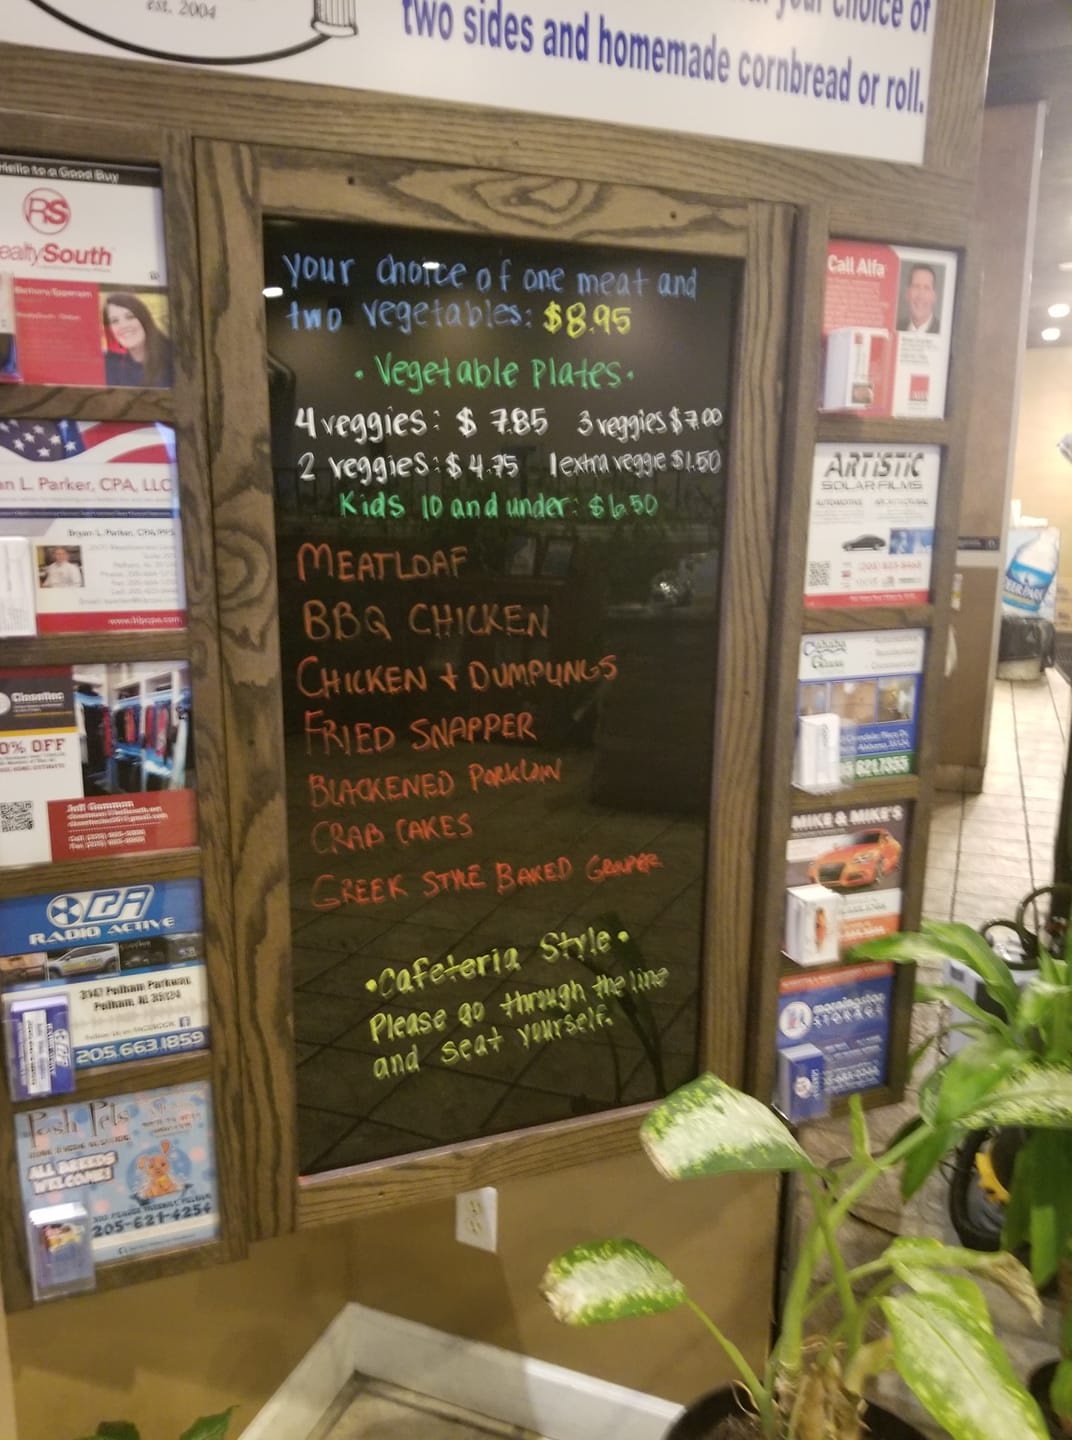 est. 2004
your choice of
two sides and homemade cornbread or roll.
Hello to a Good Buy
RS
ealtySouth
your choice of one meat and
two vegetables: $8.95
• Vegetable Plates •
4 veggies: $ 7.85 3 veggies $7.00
2 veggies: $4.75 1 extra veggie $1.50
Kids 10 and under: $6.50
MEATLOAF
BBQ CHICKEN
CHICKEN + DUMPLINGS
FRIED SNAPPER
BLACKENED PORKLOIN
CRAB CAKES
GREEK STYLE BAKED GROUPER
• Cafeteria Style •
Please go through the line
and seat yourself.
an L. Parker, CPA, LLC
Bryan L. Parker, CPA/PFS
0% OFF
Jeff Gamman
RADIO ACTIVE
3147 Pelham Parkway,
Pelham, Al 35124
205.663.1859
Posh Pets
ALL BREEDS
WELCOME!
205-621-4254
Call Alfa
ARTISTIC
SOLAR FILMS
AUTOMOTIVE
Cahaba
Glass
MIKE & MIKE'S
morningstar
STORAGE
DEER PARK